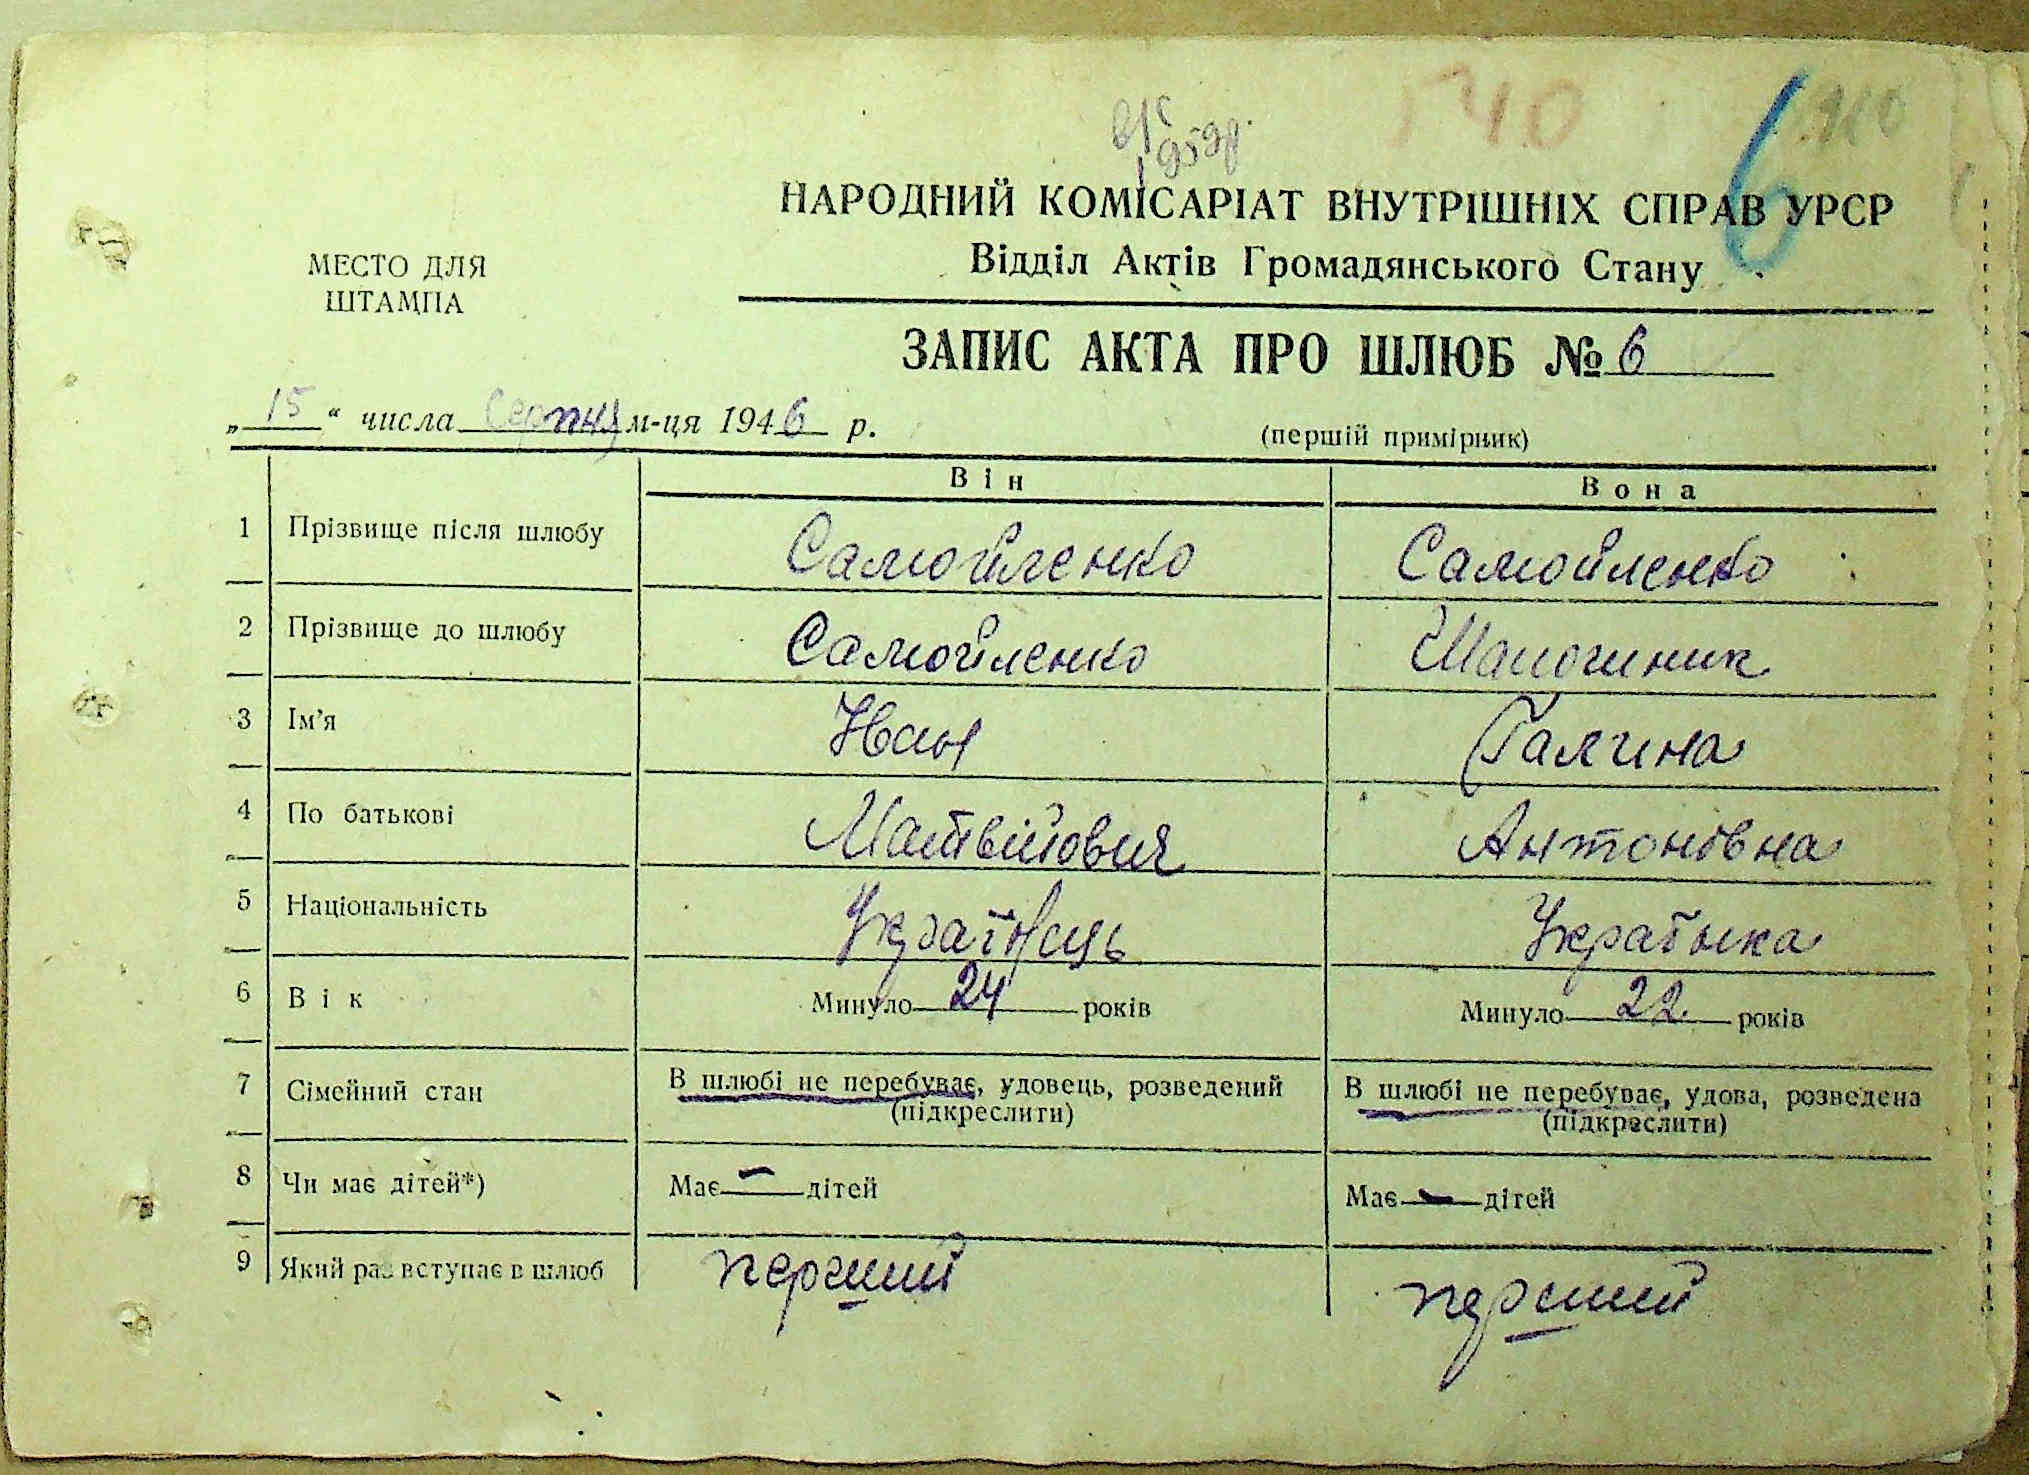 НАРОДНИЙ КОМІСАРІАТ ВНУТРІШНІХ СПРАВ УРСР
6
МЕСТО ДЛЯ
ШТАМПА
Відділ Актів Громадянського Стану
ЗАПИС АКТА ПРО ШЛЮБ № 6
„ 15 “ числа Серпня м-ця 1946 р.
(першій примірник)
Він Вона
1 Прізвище після шлюбу Самойленко Самойленко
2 Прізвище до шлюбу Самойленко
3 Ім’я Иван Галина
4 По батькові Матвійович Антонівна
5 Національність Українець Українка
6 Вік Минуло 24 років Минуло 22 років
7 Сімейний стан В шлюбі не перебуває, удовець, розведений В шлюбі не перебуває, удова, розведена
(підкреслити) (підкреслити)
8 Чи має дітей*) Має — дітей Має — дітей
9 Який раз вступає в шлюб перший перший